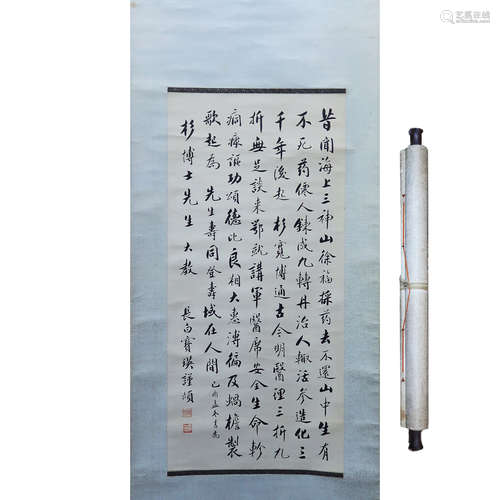 昔聞海上三神山徐福採药去不還山中生有
不死药僊人鍊成九轉丹治人輒活参造化三
千年後起杉寬博通古今明醫理三折九
折無足談来鄂就講軍醫席安全生命斡
痌瘝謳功頌德比良相大惠溥徧及蝸檐製
歌起為先生壽同登壽域在人間己酉孟冬書為
杉博士先生大教
長白寶瑛謹頌
艺狐在线